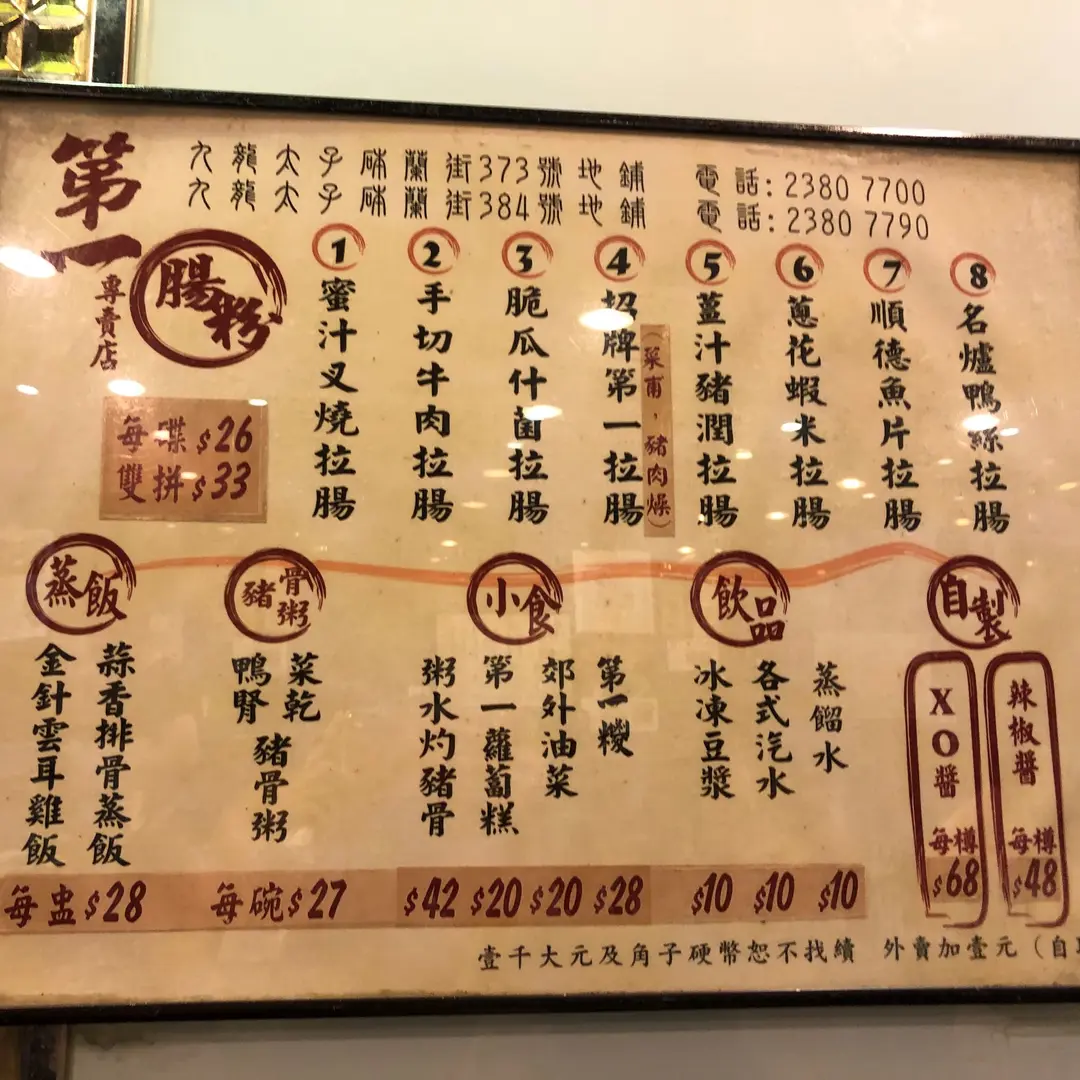 第一
腸粉
專賣店
九龍太子砵蘭街373號地鋪 電話: 2380 7700
九龍太子砵蘭街384號地鋪 電話: 2380 7790
每碟$26
雙拼$33
1 蜜汁叉燒拉腸
2 手切牛肉拉腸
3 脆瓜什菌拉腸
4 招牌第一拉腸
(菜甫，豬肉燥)
5 薑汁豬潤拉腸
6 蔥花蝦米拉腸
7 順德魚片拉腸
8 名爐鴨絲拉腸
蒸飯
蒜香排骨蒸飯
金針雲耳雞飯
每盅$28
豬骨粥
菜乾
鴨腎
豬骨粥
每碗$27
小食
粥水灼豬骨
$42
第一蘿蔔糕
$20
郊外油菜
$20
第一糭
$28
飲品
冰凍豆漿
$10
各式汽水
$10
蒸餾水
$10
自製
XO醬
每樽
$68
辣椒醬
每樽
$48
壹千大元及角子硬幣恕不找續 外賣加壹元（自